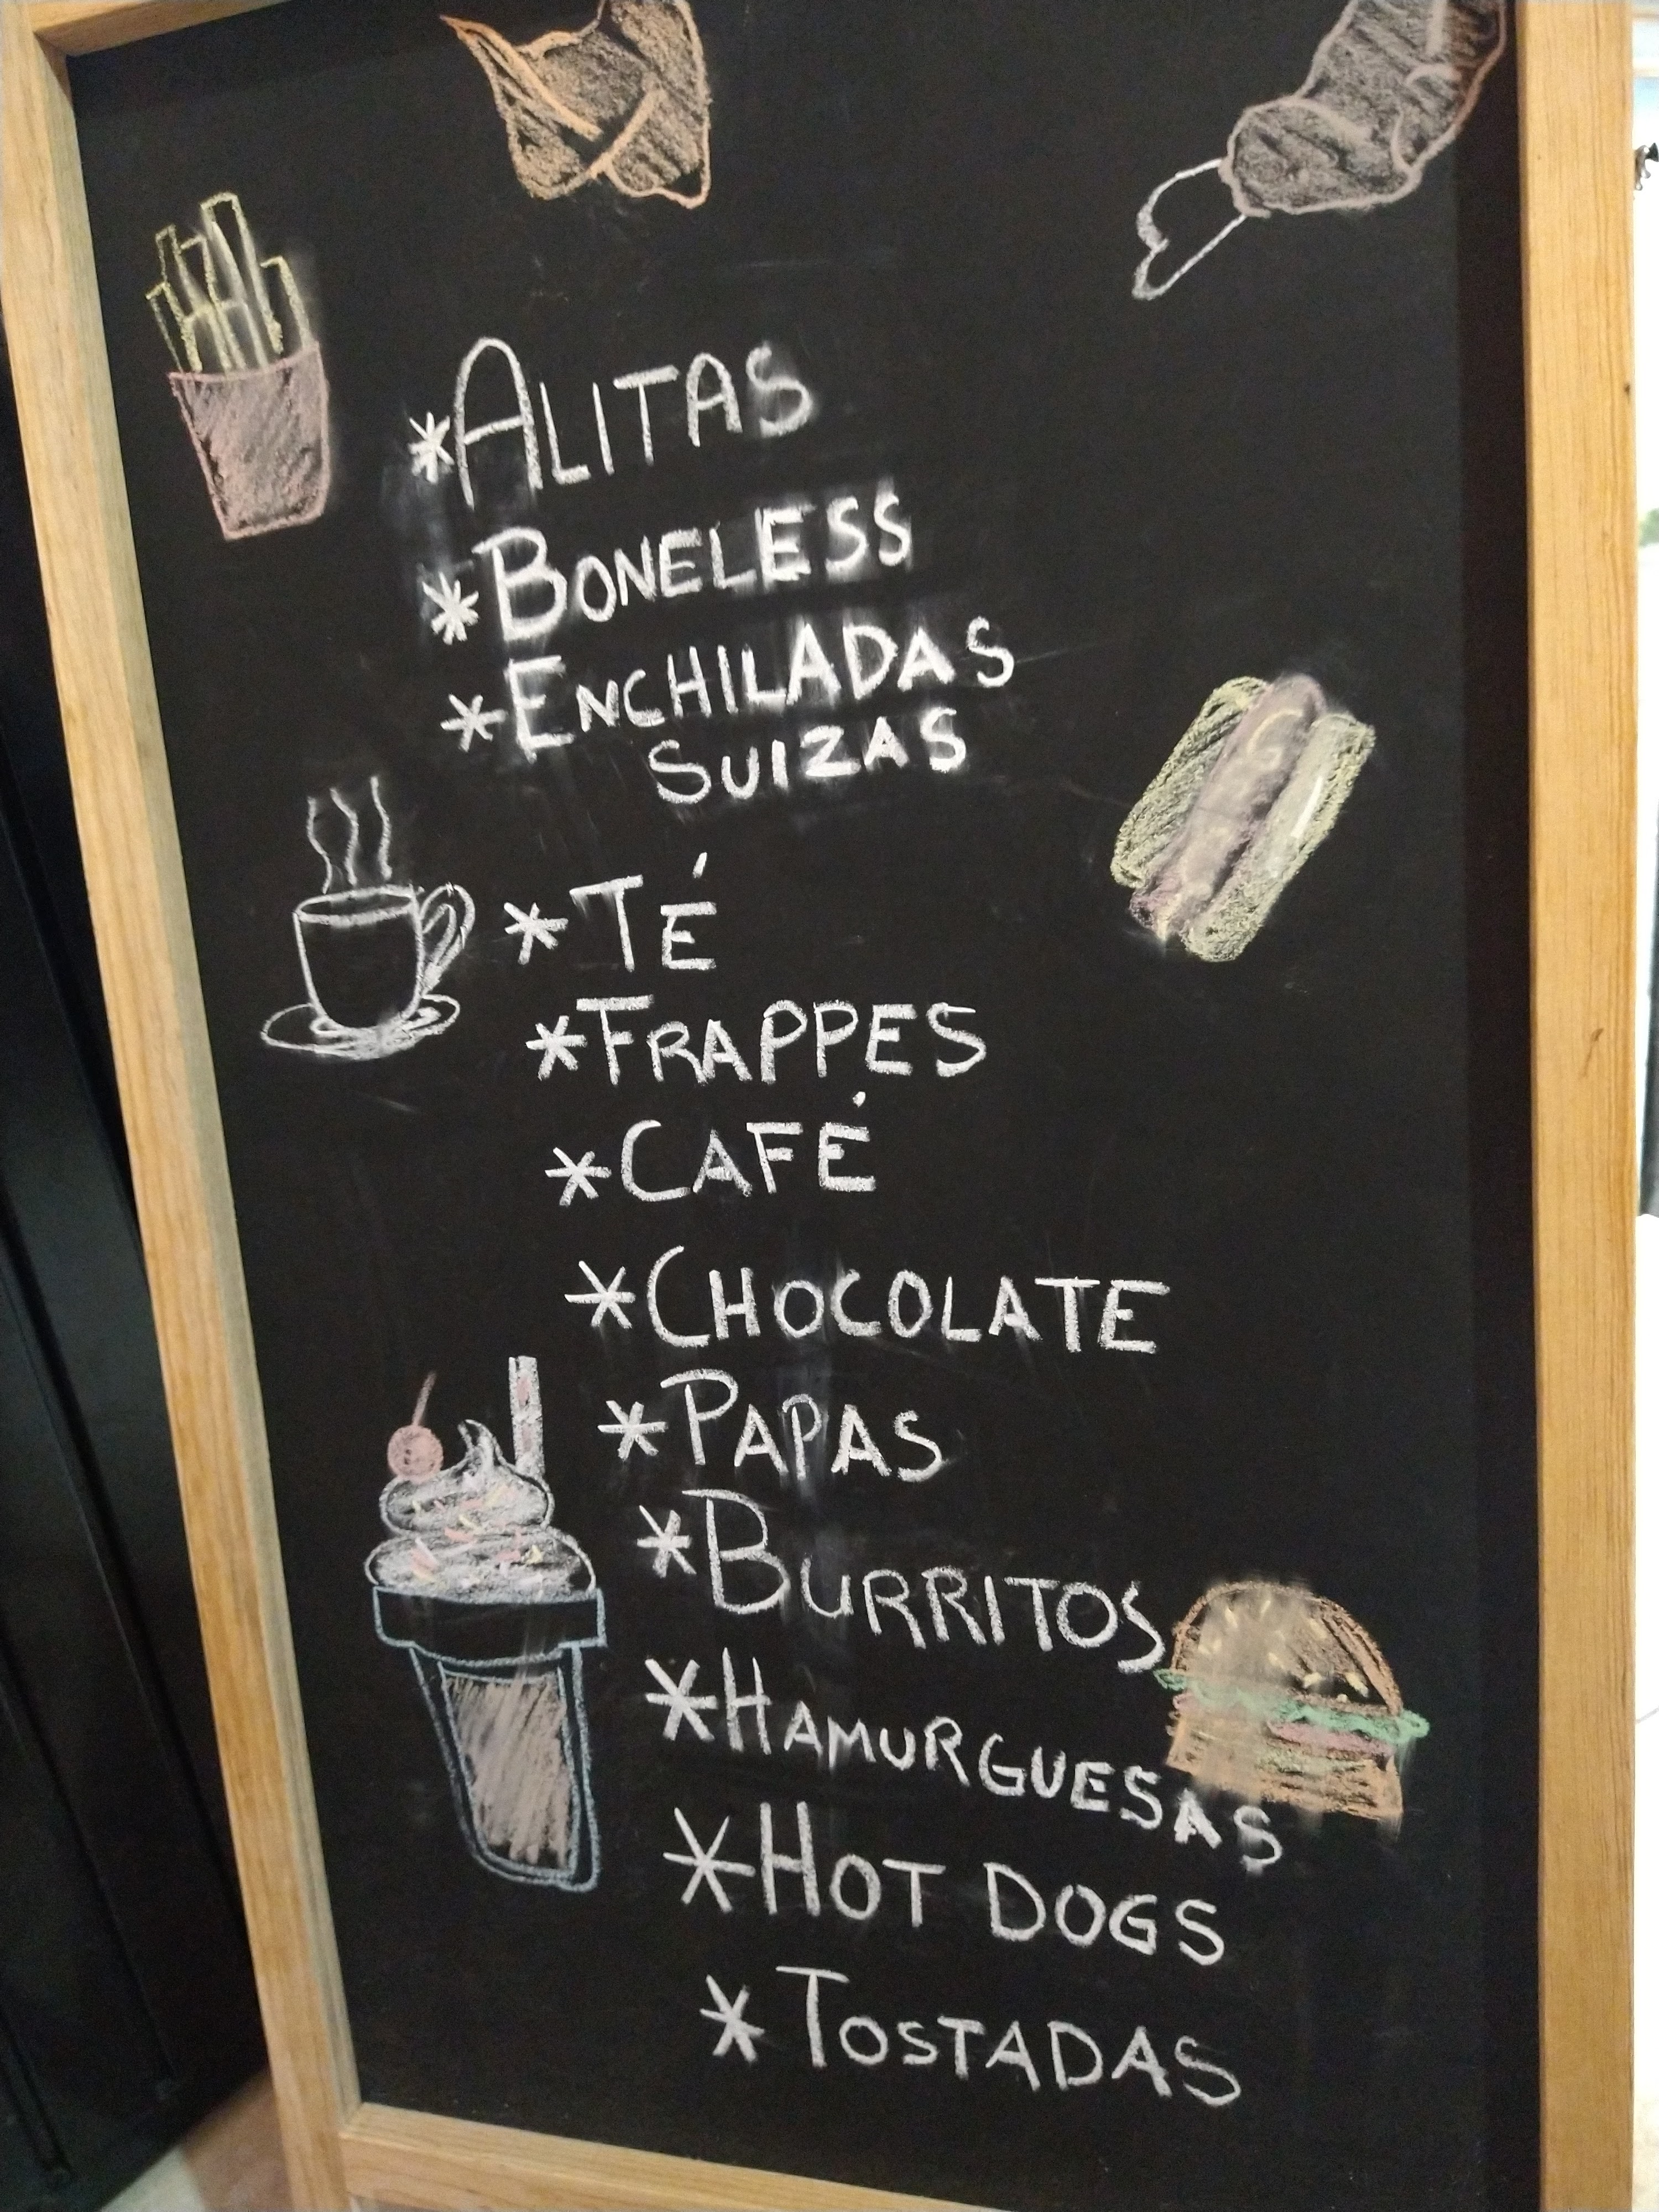 *ALITAS
*BONELESS
*ENCHILADAS
SUIZAS
*TÉ
*FRAPPES
*CAFÉ
*CHOCOLATE
*PAPAS
*BURRITOS
*HAMURGUESAS
*HOT DOGS
*TOSTADAS